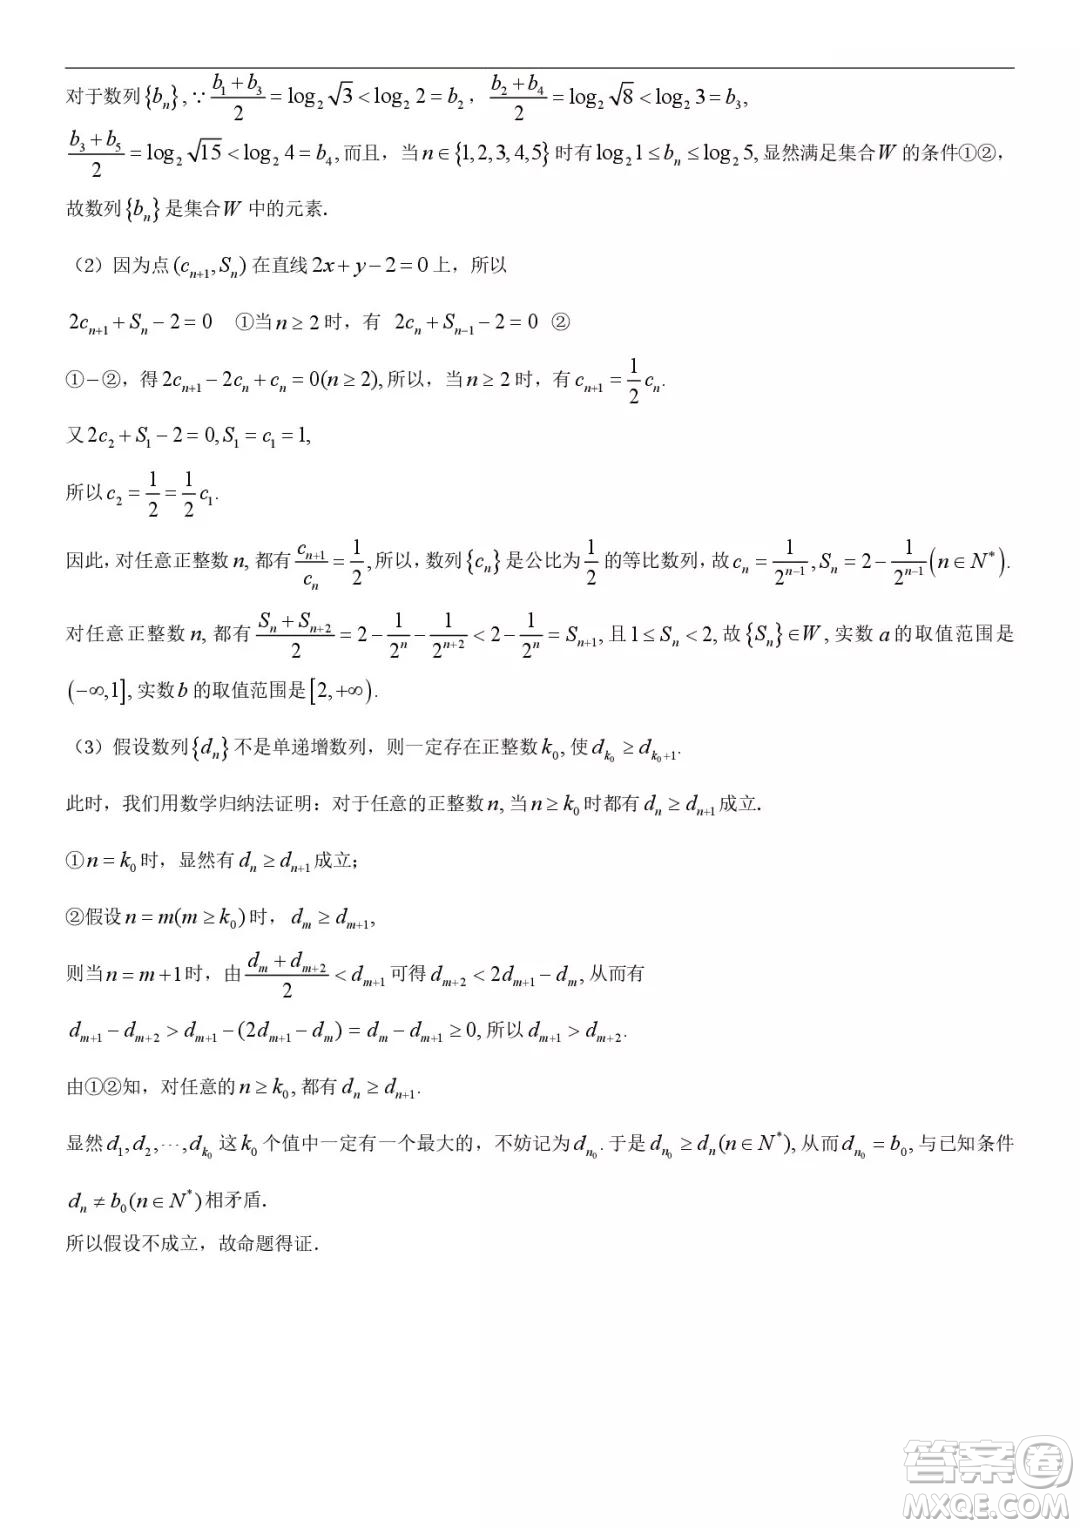 对于数列{bₙ}, ∵ (b₁+b₃)/2 = log₂√3 < log₂2 = b₂, (b₂+b₄)/2 = log₂√8 < log₂3 = b₃,
(b₃+b₅)/2 = log₂√15 < log₂4 = b₄, 而且，当 n∈{1,2,3,4,5} 时有 log₂1 ≤ bₙ ≤ log₂5, 显然满足集合W 的条件①②，
故数列{bₙ}是集合W 中的元素．
（2）因为点(cₙ₊₁, Sₙ)在直线2x+y−2=0上，所以
2cₙ₊₁+Sₙ−2=0 ①当n≥2时，有 2cₙ+Sₙ₋₁−2=0 ②
①−②，得2cₙ₊₁−2cₙ+cₙ=0(n≥2), 所以，当n≥2时，有cₙ₊₁=1/2 cₙ.
又2c₂+S₁−2=0, S₁=c₁=1,
所以c₂=1/2=1/2 c₁.
因此, 对任意正整数n, 都有 cₙ₊₁/cₙ=1/2, 所以，数列{cₙ}是公比为1/2的等比数列，故cₙ=1/2ⁿ⁻¹, Sₙ=2−1/2ⁿ⁻¹(n∈N*).
对任意正整数n, 都有 (Sₙ+Sₙ₊₂)/2=2−1/2ⁿ−1/2ⁿ⁺²<2−1/2ⁿ=Sₙ₊₁, 且1≤Sₙ<2, 故{Sₙ}∈W, 实数a的取值范围是
(−∞,1], 实数b的取值范围是[2,+∞).
（3）假设数列{dₙ}不是单递增数列，则一定存在正整数k₀, 使d_{k₀}≥d_{k₀+1}.
此时，我们用数学归纳法证明：对于任意的正整数n, 当n≥k₀时都有dₙ≥dₙ₊₁成立．
①n=k₀时，显然有dₙ≥dₙ₊₁成立；
②假设n=m(m≥k₀)时，dₘ≥dₘ₊₁,
则当n=m+1时，由(dₘ+dₘ₊₂)/2<dₘ₊₁可得dₘ₊₂<2dₘ₊₁−dₘ, 从而有
dₘ₊₁−dₘ₊₂>dₘ₊₁−(2dₘ₊₁−dₘ)=dₘ−dₘ₊₁≥0, 所以dₘ₊₁>dₘ₊₂.
由①②知，对任意的n≥k₀, 都有dₙ≥dₙ₊₁.
显然d₁,d₂,⋯,d_{k₀}这k₀个值中一定有一个最大的，不妨记为d_{n₀}. 于是d_{n₀}≥dₙ(n∈N*), 从而d_{n₀}=b₀, 与已知条件
dₙ≠b₀(n∈N*)相矛盾．
所以假设不成立，故命题得证．
答案卷
MXQE.COM